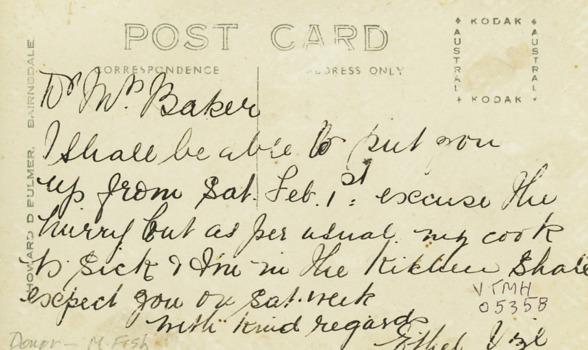 POST CARD
CORRESPONDENCE
ADDRESS ONLY
KODAK
AUSTRAL
AUSTRAL
KODAK
HOWARD D BULMER. BAIRNSDALE
Dr Mrs Baker
I shall be able to put you
up from Sat. Feb. 1st. excuse the
hurry but as per usual my cook
is sick & I'm in the Kitchen Shall
expect you on Sat. week
with kind regards
Ethel
VTMH
05358
Donor - M. Fish